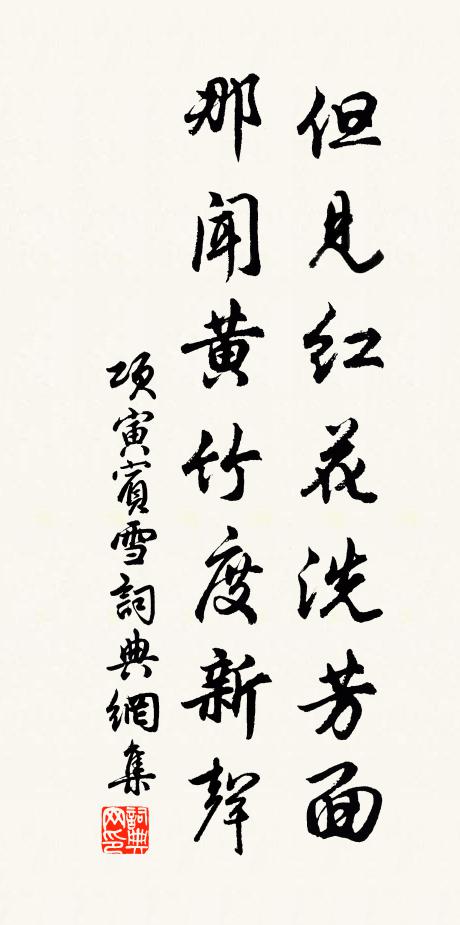 但见红花洗芳面
那闻黄竹度新声
项寅賓雪詞典網集
詞典网印